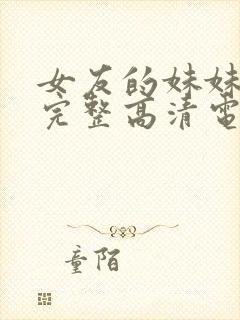 女友的妹妹
完整高清電
童陌